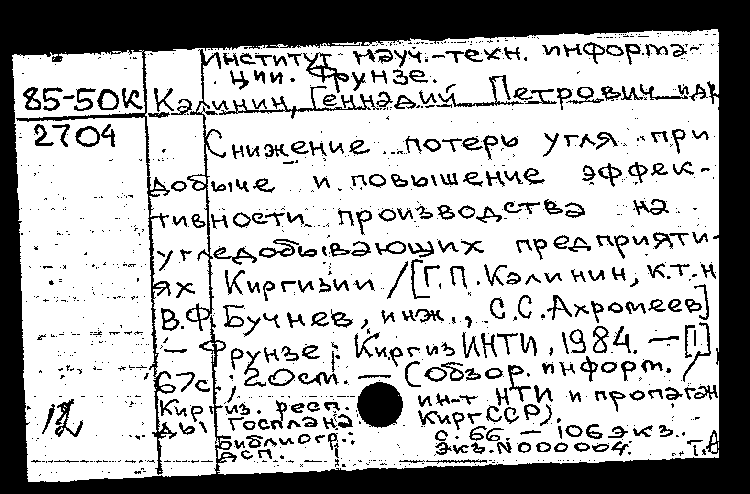 Институт науч.-техн. информа-
ции. Фрунзе.
85-50К Калинин, Геннадий Петрович и др
2704
Снижение потерь угля при
добыче и повышение эффек-
тивности производства на
угледобывающих предприяти-
ях Киргизии /[Г.П.Калинин, к.т.н
В.Ф Бучнев, инж., С.С.Ахромеев]
— Фрунзе: КиргизИНТИ, 1984. — [1],
67с.; 20см. — (Обзор. информ. /
Киргиз. респ. ин-т НТИ и пропаган
ды Госплана КиргССР)
Библиогр.: с. 66. — 106 экз.
дсп. Экз.N000004. Т.А
12